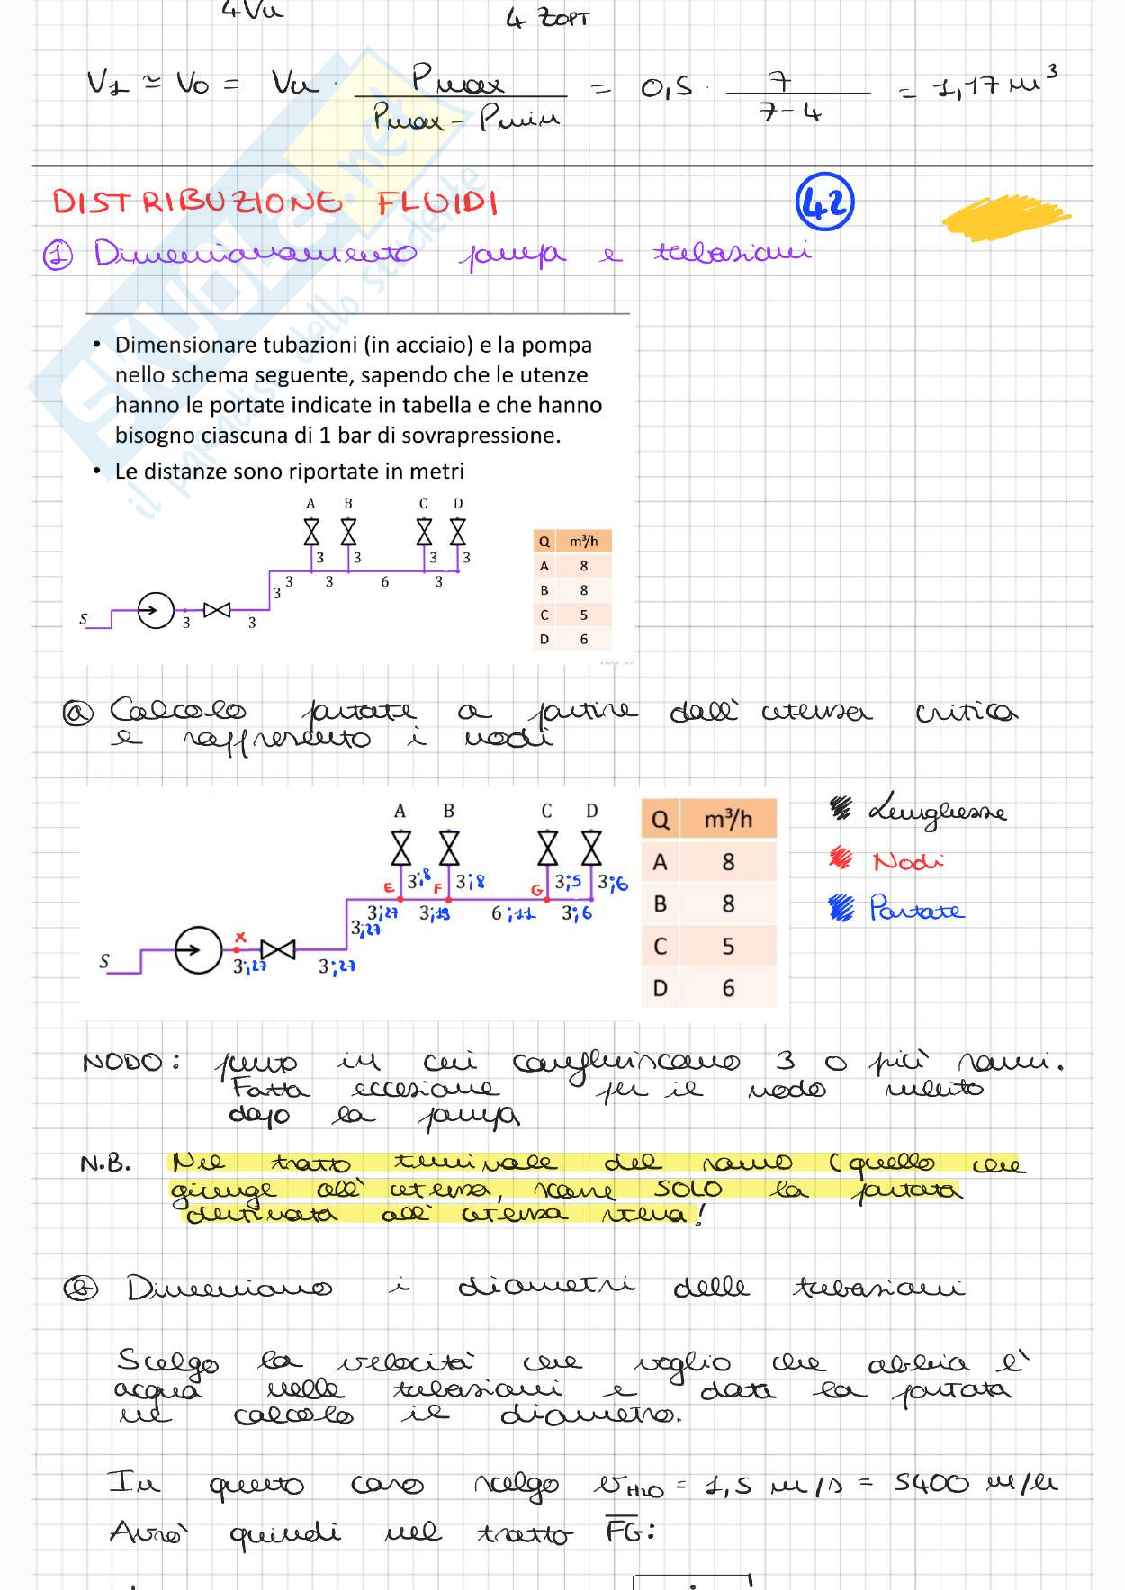 4Vu
4 ZOPT
V1 ≃ V0 = Vu · Pmax / (Pmax - Pmin) = 0,5 · 7 / (7-4) = 1,17 m³
DISTRIBUZIONE FLUIDI
42
① Dimensionamento pompa e tubazioni
• Dimensionare tubazioni (in acciaio) e la pompa
nello schema seguente, sapendo che le utenze
hanno le portate indicate in tabella e che hanno
bisogno ciascuna di 1 bar di sovrapressione.
• Le distanze sono riportate in metri
A B C D
3 3 3 3
3 3 6 3
3
S 3 3
Q m³/h
A 8
B 8
C 5
D 6
ⓐ Calcolo portate a partire dall'utenza critica
e rappresento i nodi
A B C D
E 3;8 F 3;8 G 3;5 3;6
3;27 3;19 6;11 3;6
3;27
X
S 3;27 3;27
Q m³/h
A 8
B 8
C 5
D 6
Lunghezze
Nodi
Portate
NODO: punto in cui confluiscono 3 o più rami.
Fatta eccezione per il nodo subito
dopo la pompa
N.B. Nel tratto terminale del ramo (quello che
giunge all'utenza, scorre SOLO la portata
destinata all'utenza stessa!
ⓑ Dimensiono i diametri delle tubazioni
Scelgo la velocità che voglio che abbia l'
acqua nelle tubazioni e data la portata
ne calcolo il diametro.
In questo caso scelgo vH2O = 1,5 m/s = 5400 m/h
Avrò quindi nel tratto FG:
SKUOLA.net
il paradiso dello studente